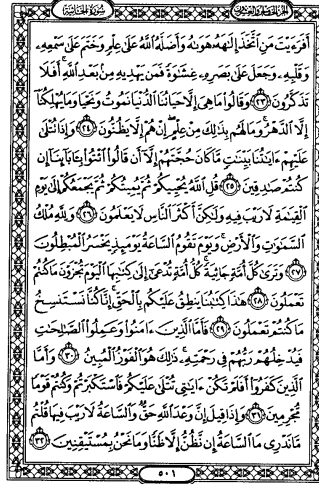 الجزء الخامس والعشرون سورة الجاثية
أَفَرَءَيْتَ مَنِ ٱتَّخَذَ إِلَٰهَهُۥ هَوَىٰهُ وَأَضَلَّهُ ٱللَّهُ عَلَىٰ عِلْمٍ وَخَتَمَ عَلَىٰ سَمْعِهِۦ
وَقَلْبِهِۦ وَجَعَلَ عَلَىٰ بَصَرِهِۦ غِشَٰوَةً فَمَن يَهْدِيهِ مِنۢ بَعْدِ ٱللَّهِ ۚ أَفَلَا
تَذَكَّرُونَ ﴿٢٣﴾ وَقَالُوا۟ مَا هِىَ إِلَّا حَيَاتُنَا ٱلدُّنْيَا نَمُوتُ وَنَحْيَا وَمَا يُهْلِكُنَآ
إِلَّا ٱلدَّهْرُ ۚ وَمَا لَهُم بِذَٰلِكَ مِنْ عِلْمٍ ۖ إِنْ هُمْ إِلَّا يَظُنُّونَ ﴿٢٤﴾ وَإِذَا تُتْلَىٰ
عَلَيْهِمْ ءَايَٰتُنَا بَيِّنَٰتٍ مَّا كَانَ حُجَّتَهُمْ إِلَّآ أَن قَالُوا۟ ٱئْتُوا۟ بِـَٔابَآئِنَآ إِن
كُنتُمْ صَٰدِقِينَ ﴿٢٥﴾ قُلِ ٱللَّهُ يُحْيِيكُمْ ثُمَّ يُمِيتُكُمْ ثُمَّ يَجْمَعُكُمْ إِلَىٰ يَوْمِ
ٱلْقِيَٰمَةِ لَا رَيْبَ فِيهِ وَلَٰكِنَّ أَكْثَرَ ٱلنَّاسِ لَا يَعْلَمُونَ ﴿٢٦﴾ وَلِلَّهِ مُلْكُ
ٱلسَّمَٰوَٰتِ وَٱلْأَرْضِ ۚ وَيَوْمَ تَقُومُ ٱلسَّاعَةُ يَوْمَئِذٍ يَخْسَرُ ٱلْمُبْطِلُونَ
﴿٢٧﴾ وَتَرَىٰ كُلَّ أُمَّةٍ جَاثِيَةً ۚ كُلُّ أُمَّةٍ تُدْعَىٰٓ إِلَىٰ كِتَٰبِهَا ٱلْيَوْمَ تُجْزَوْنَ مَا كُنتُمْ
تَعْمَلُونَ ﴿٢٨﴾ هَٰذَا كِتَٰبُنَا يَنطِقُ عَلَيْكُم بِٱلْحَقِّ ۚ إِنَّا كُنَّا نَسْتَنسِخُ
مَا كُنتُمْ تَعْمَلُونَ ﴿٢٩﴾ فَأَمَّا ٱلَّذِينَ ءَامَنُوا۟ وَعَمِلُوا۟ ٱلصَّٰلِحَٰتِ
فَيُدْخِلُهُمْ رَبُّهُمْ فِى رَحْمَتِهِۦ ۚ ذَٰلِكَ هُوَ ٱلْفَوْزُ ٱلْمُبِينُ ﴿٣٠﴾ وَأَمَّا
ٱلَّذِينَ كَفَرُوٓا۟ أَفَلَمْ تَكُنْ ءَايَٰتِى تُتْلَىٰ عَلَيْكُمْ فَٱسْتَكْبَرْتُمْ وَكُنتُمْ قَوْمًا
مُّجْرِمِينَ ﴿٣١﴾ وَإِذَا قِيلَ إِنَّ وَعْدَ ٱللَّهِ حَقٌّ وَٱلسَّاعَةُ لَا رَيْبَ فِيهَا قُلْتُم
مَّا نَدْرِى مَا ٱلسَّاعَةُ إِن نَّظُنُّ إِلَّا ظَنًّا وَمَا نَحْنُ بِمُسْتَيْقِنِينَ ﴿٣٢﴾
٥٠١